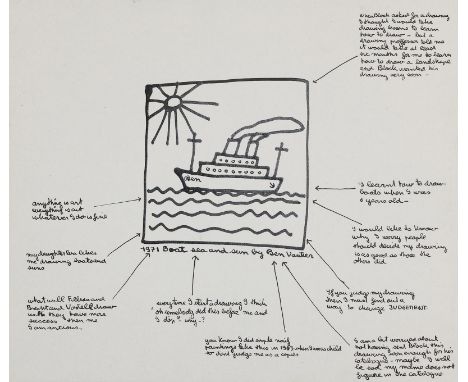 when Block asked for a drawing
I thought I would take
drawing lessons to learn
how to draw - but a
drawing professor told me
it would take at least
six months for me to learn
how to draw a landscape
and Block wanted his
drawing very soon -
Ben
I learnt how to draw
boats when I was
6 years old -
anything is art
everything is art
whatever I do is fine
I would like to know
why I worry people
should decide my drawing
is as good as those the
others did.
my daughter Eva likes
me drawing boats and
suns
1971 Boat sea and sun by Ben Vautier
what will Filliou and
Brecht and Vostell draw
will they have more
success than me
I am anxious.
everytime I start a drawing I think
"oh somebody did this before me and
I don't" why -?
If you judge my drawing
then I must find out a
way to change JUDGEMENT.
you know I did simple naif
paintings like this in 1939 when I was a child
so don't judge me as a copier
I am but worried about
not having sent Block this
drawing soon enough for his
catalogue - maybe I will
be sad my name does not
figure in the catalogue